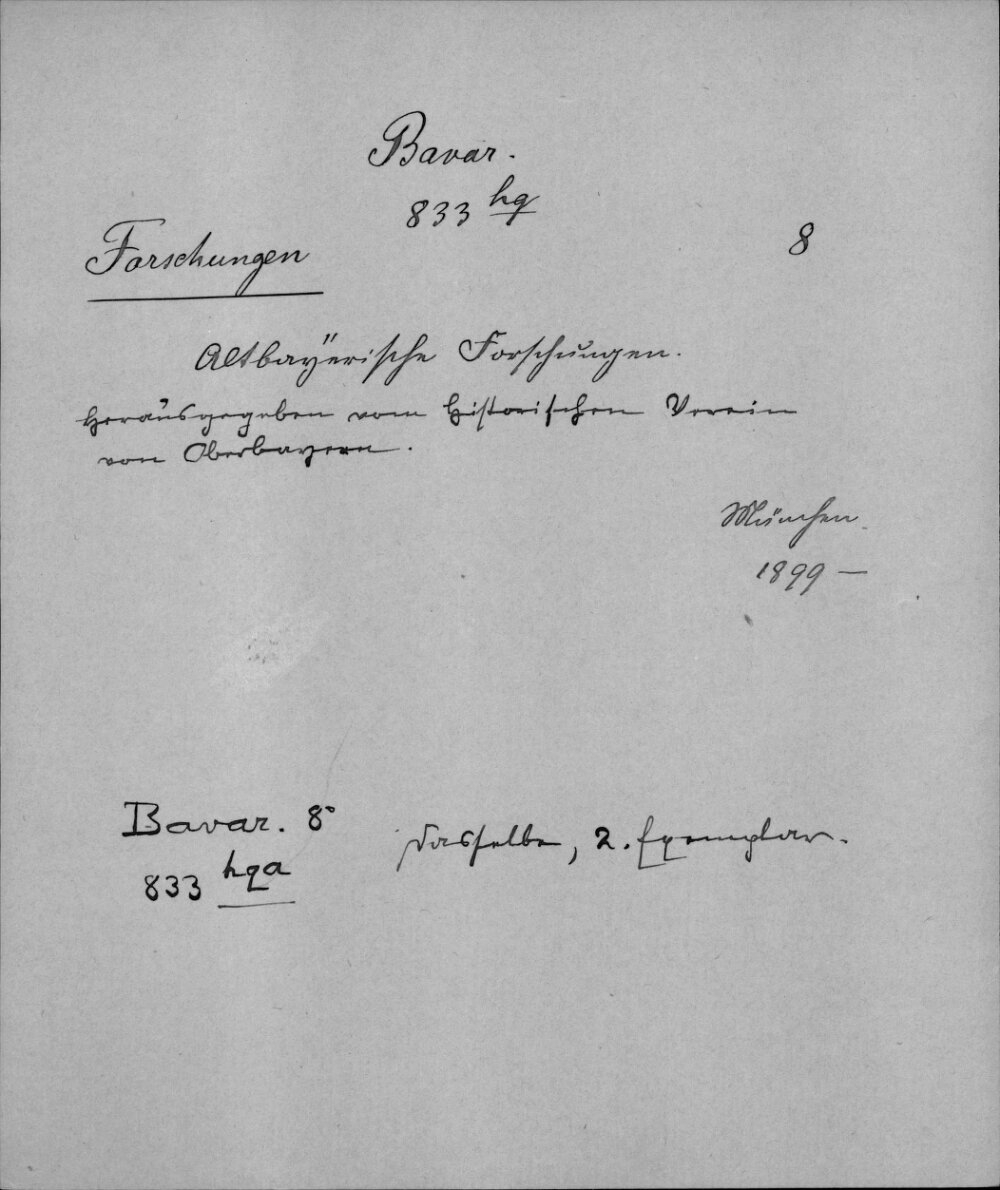 Bavar.
833 hq
8
Forschungen
Altbayerische Forschungen.
Herausgegeben vom Historischen Verein
von Oberbayern.
München
1899 —
Bavar. 8°
833 hqa
Dasselbe, 2. Exemplar.